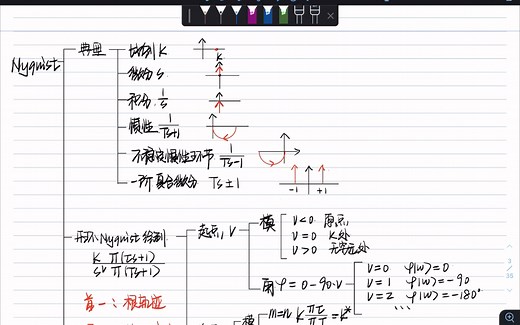 Nyquist
典型
比例 K
K
微分 s
积分 1/s
惯性 1/(Ts+1)
不稳定惯性环节 1/(Ts-1)
一阶复合微分 Ts±1
-1 +1
开环Nyquist绘制
K π(τs+1) / s^ν π(Ts+1)
起点, ν
模
ν<0 原点
ν=0 K处
ν>0 无穷远处
φ=0-90·ν
ν=0 φ(w)=0
ν=1 φ(w)=-90
ν=2 φ(w)=-180°
...
首一：根轨迹
模
m=n
3
35